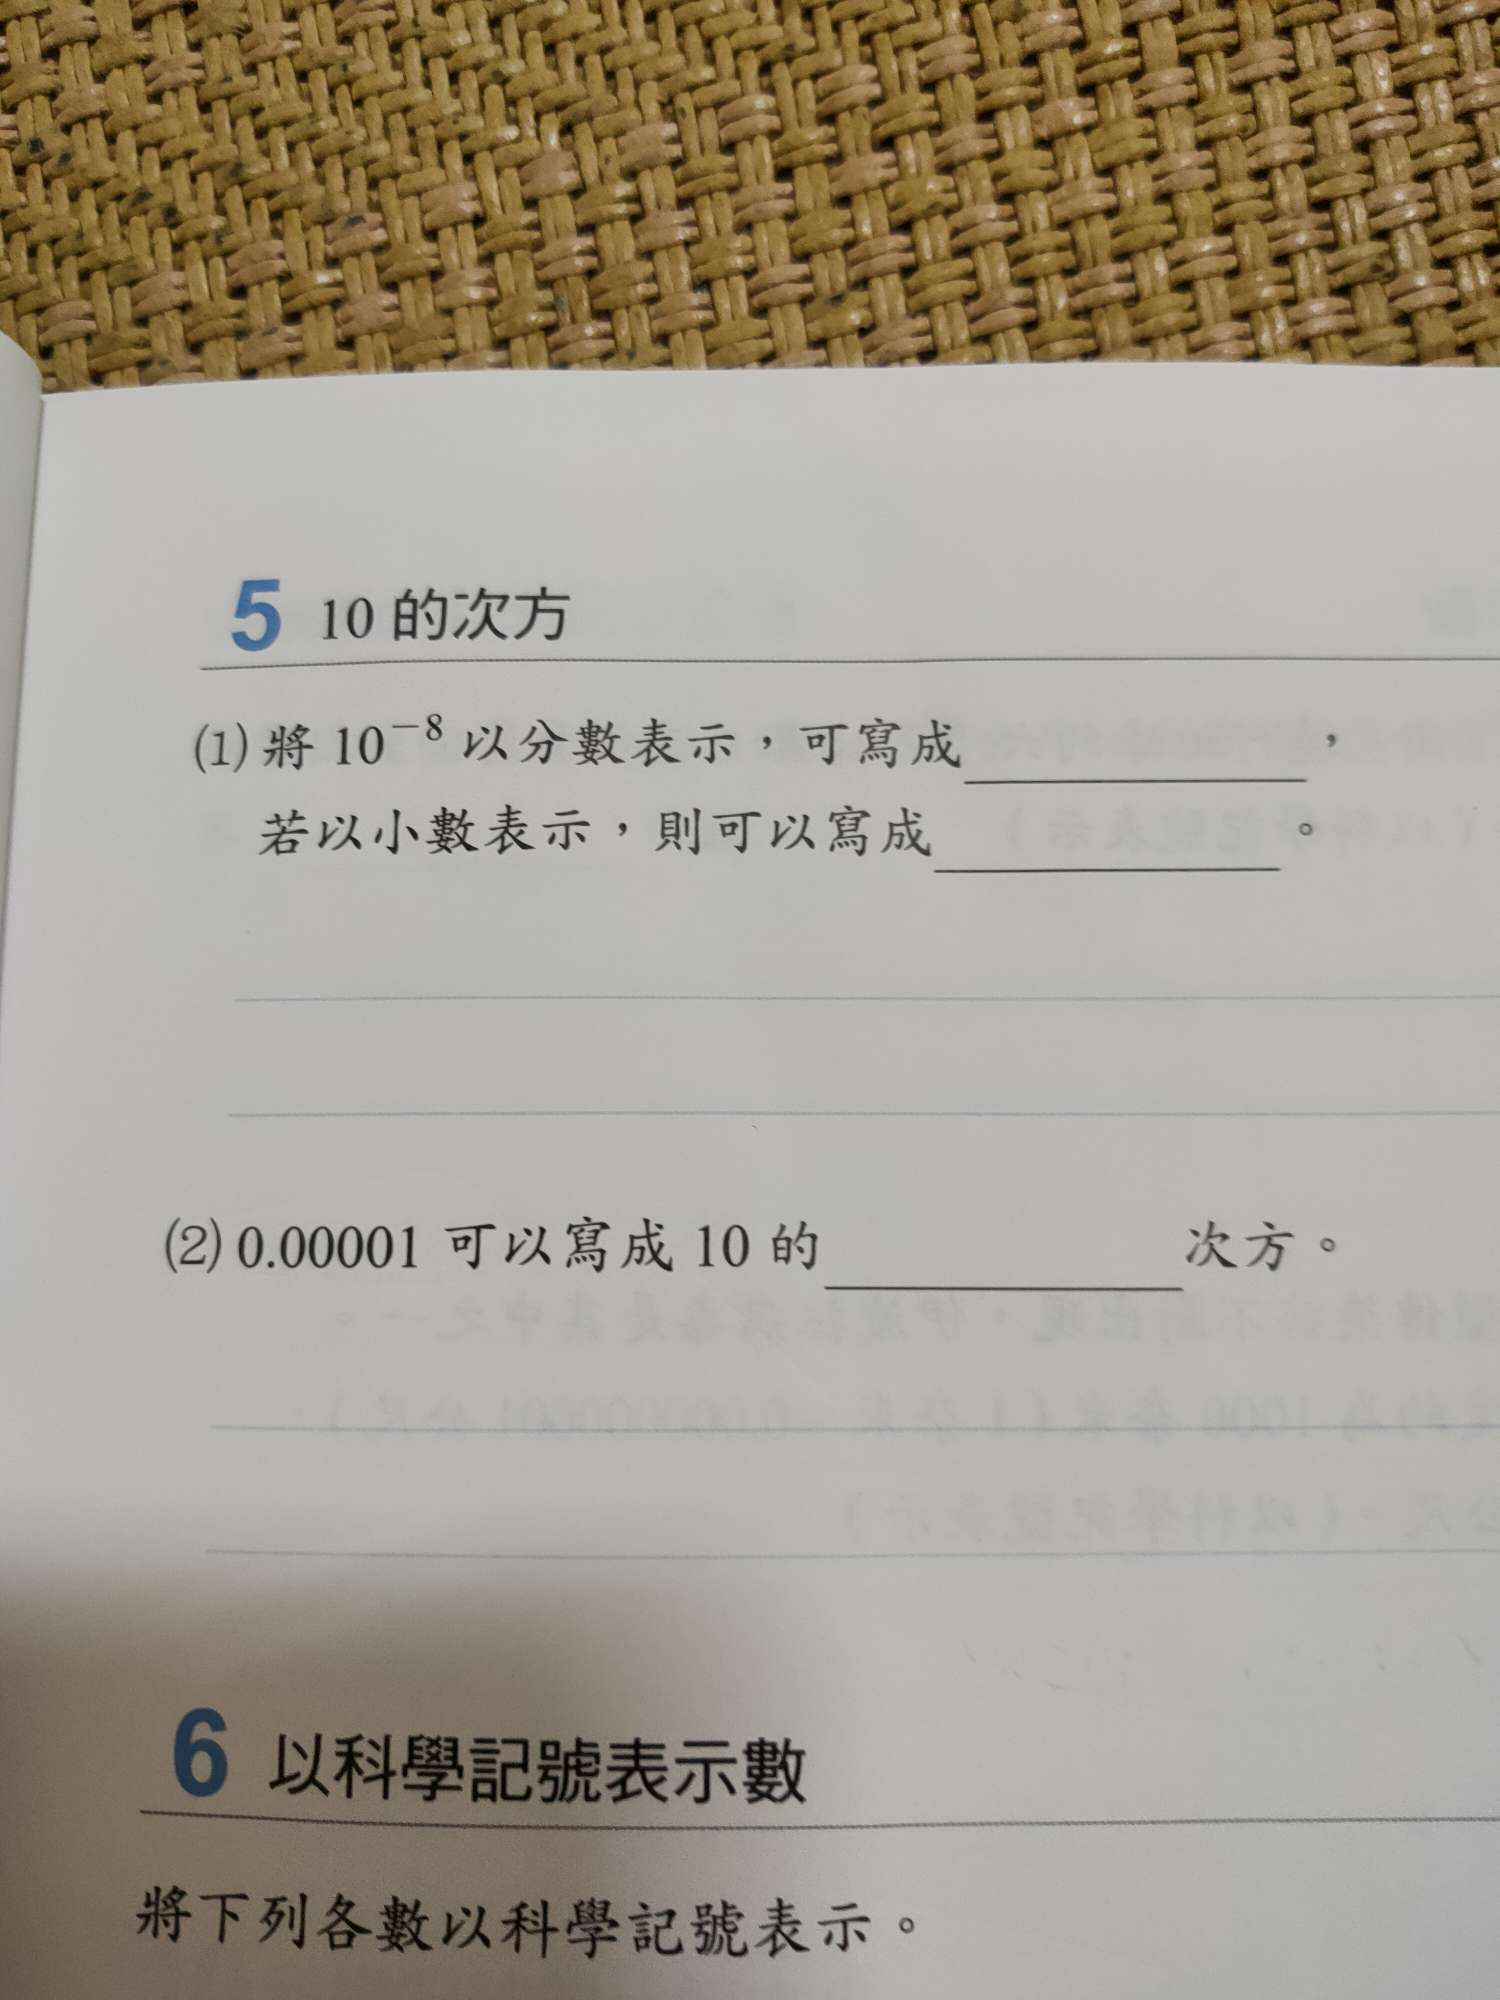 5 10 的次方
(1) 將 10⁻⁸ 以分數表示，可寫成＿＿＿＿＿＿，
若以小數表示，則可以寫成＿＿＿＿＿＿。
(2) 0.00001 可以寫成 10 的＿＿＿＿＿＿次方。
6 以科學記號表示數
將下列各數以科學記號表示。